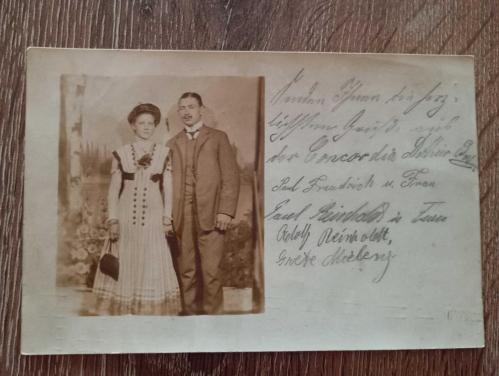 Senden Ihnen die herz-
lichsten Grüße aus
der Concordia
Paul Friedrich u. Frau
Paul Reinholdt u. Frau
Adolf Reinholdt,
Grete